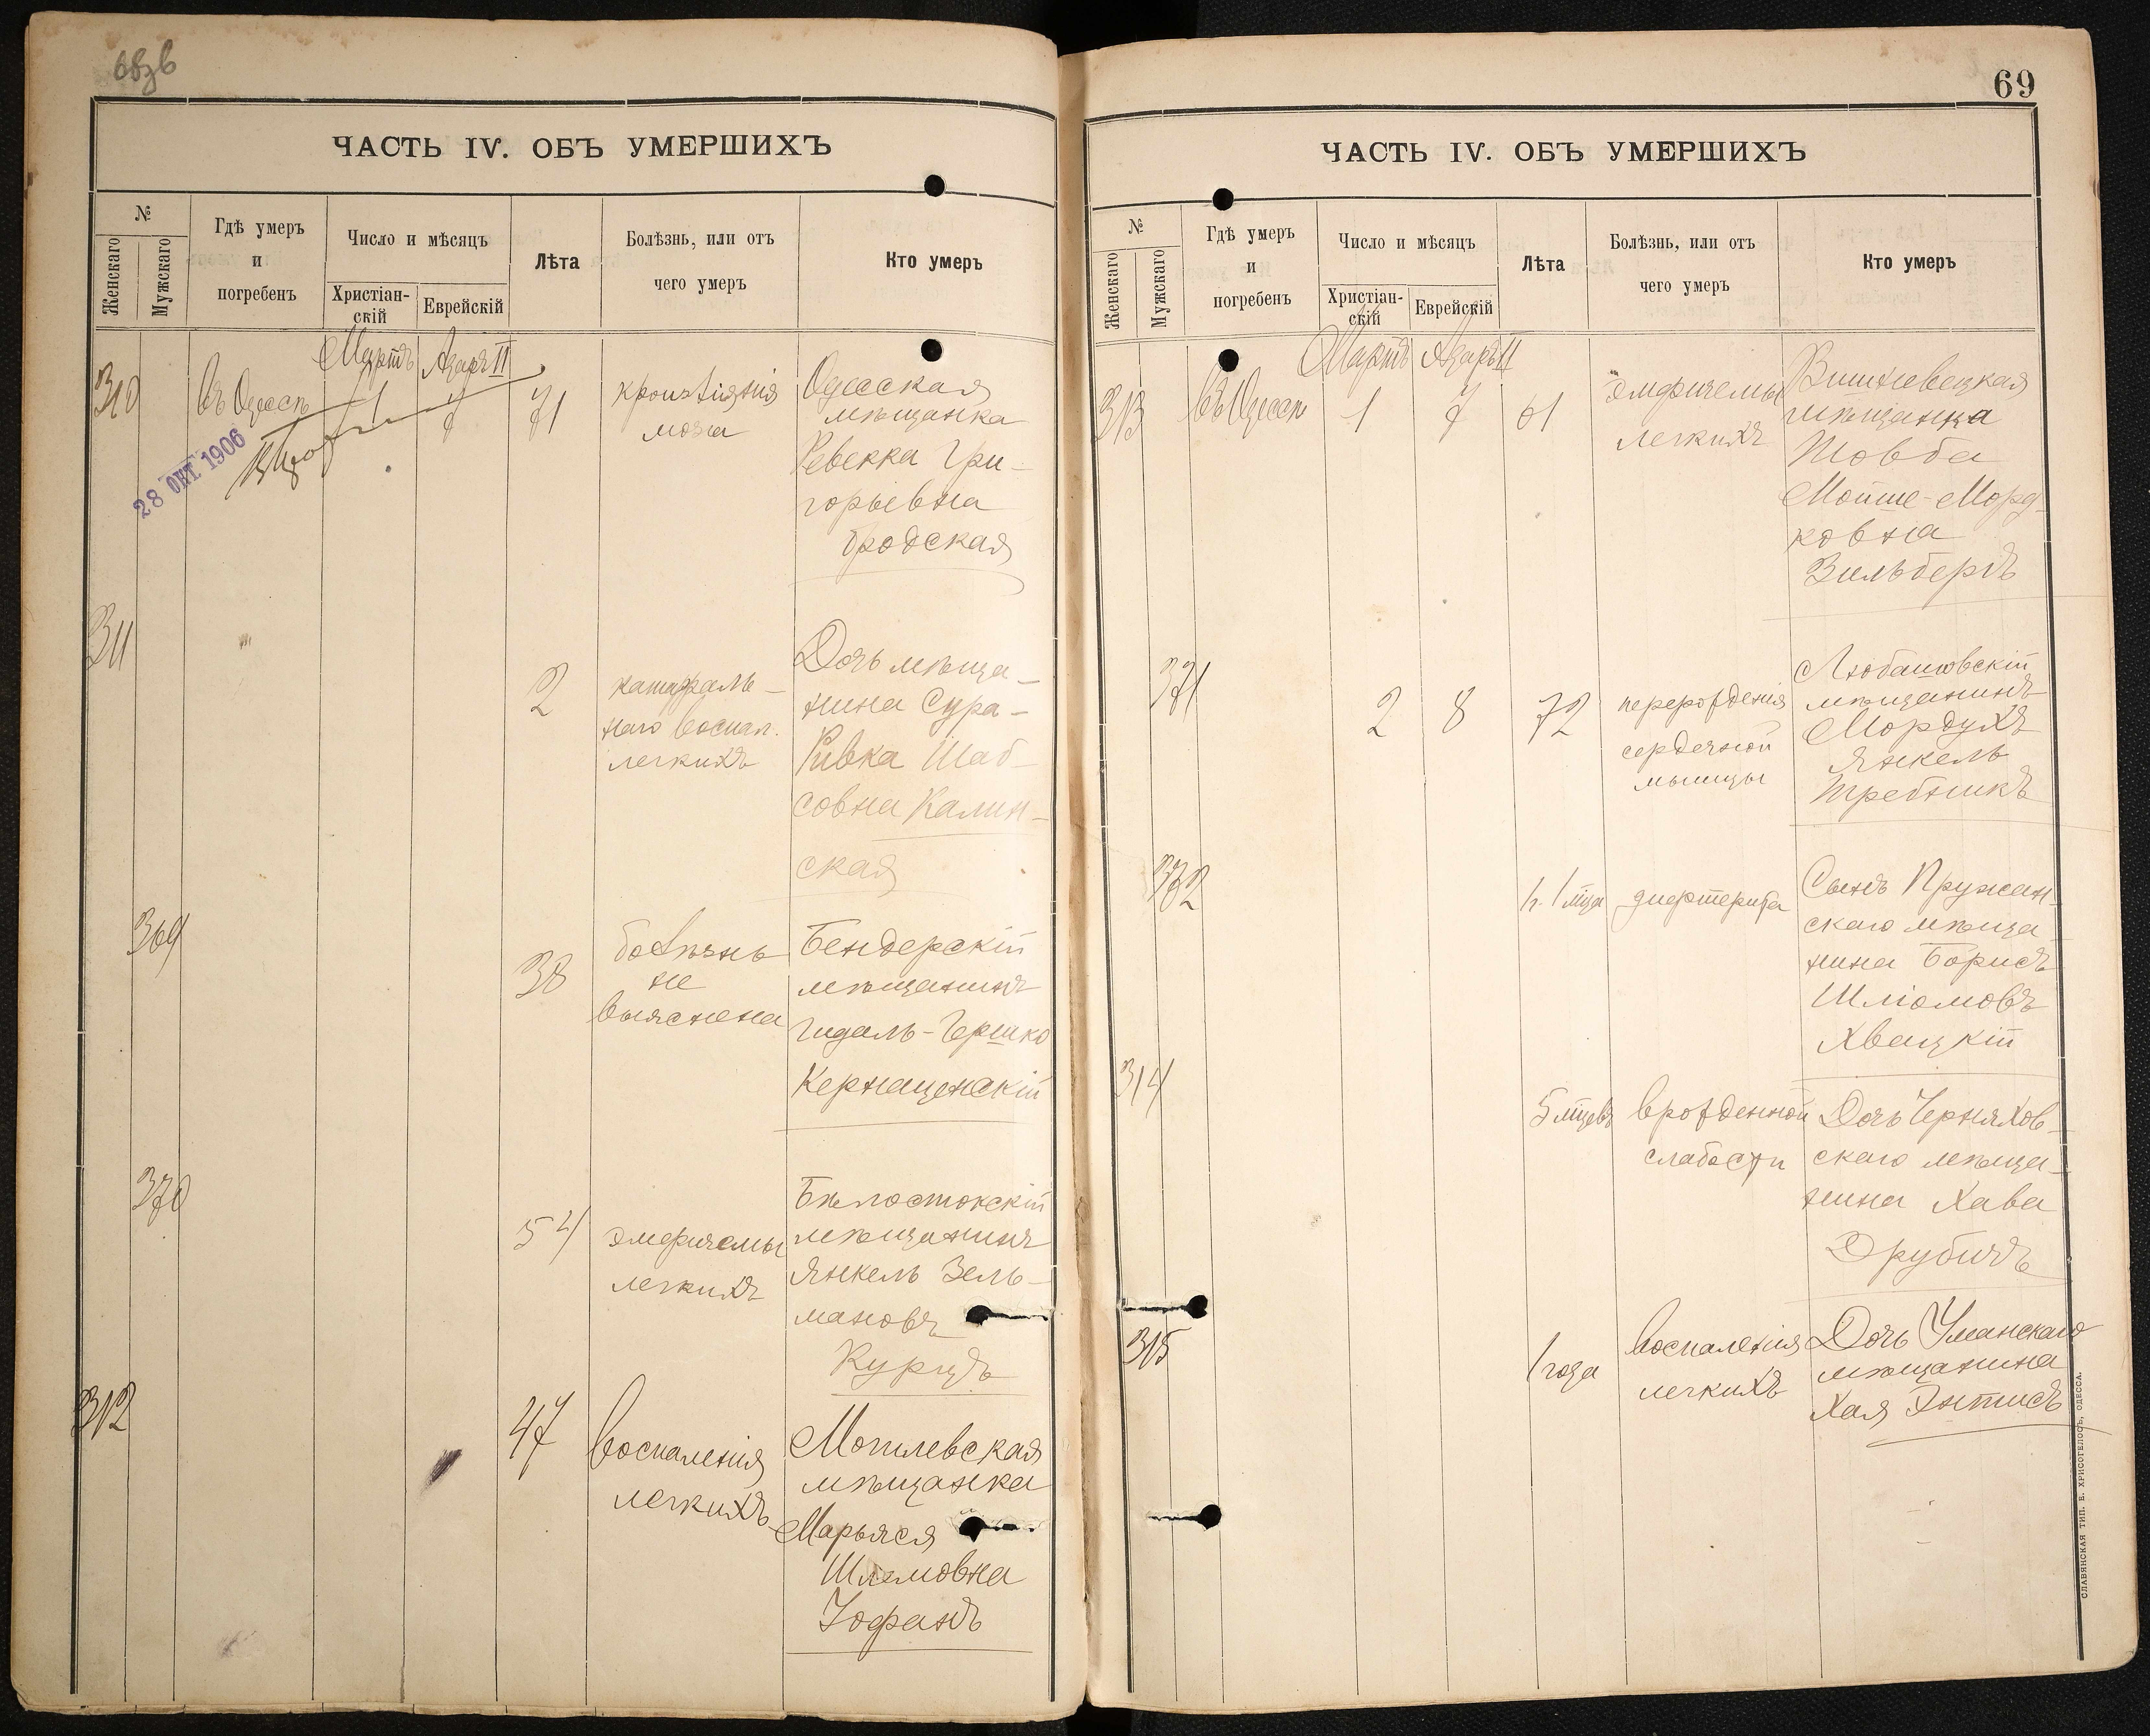 68 зв
ЧАСТЬ IV. ОБЪ УМЕРШИХЪ
№
Женскаго
Мужскаго
Гдѣ умеръ
и
погребенъ
Число и мѣсяцъ
Христіан-
скій
Еврейскій
Лѣта
Болѣзнь, или отъ
чего умеръ
Кто умеръ
Мартъ
Адаръ II
310
въ Одессѣ
1
7
71
кровоизліянія
мозга
Одесская
мѣщанка
Ревекка Гри-
горьевна
Бродская
28 ОКТ 1906
311
2
катарраль-
наго воспал.
легкихъ
Дочь мѣща-
нина Сура-
Ривка Шаб-
совна Калин-
ская
369
38
болѣзнь
не
выяснена
Бендерскій
мѣщанинъ
Гидаль-Гершко
370
54
эмфиземы
легкихъ
Бѣлостокскій
мѣщанинъ
Янкель Зель-
мановъ
Курцъ
312
47
воспаленія
легкихъ
Могилевская
мѣщанка
Марьяся
Шлемовна
69
ЧАСТЬ IV. ОБЪ УМЕРШИХЪ
№
Женскаго
Мужскаго
Гдѣ умеръ
и
погребенъ
Число и мѣсяцъ
Христіан-
скій
Еврейскій
Лѣта
Болѣзнь, или отъ
чего умеръ
Кто умеръ
Мартъ
Адаръ II
313
въ Одессѣ
1
7
61
эмфиземы
легкихъ
Вишневецкая
мѣщанка
Товба
Мойше-Морд-
ковна
Зильбергъ
371
2
8
72
перерожденія
сердечной
мышцы
Любашовскій
мѣщанинъ
Мордухъ
Янкель
Требникъ
372
дифтерита
Сынъ Пружан-
скаго мѣща-
нина Борисъ
Шліомовъ
Хвацкій
314
5 мцевъ
врожденной
слабости
Дочь Черняхов-
скаго мѣща-
нина Хава
Друбичъ
315
1 года
воспаленія
легкихъ
Дочь Уманскаго
мѣщанина
Хая Энтисъ
СЛАВЯНСКАЯ ТИП. Е. ХРИСОГЕЛОСЪ, ОДЕССА.